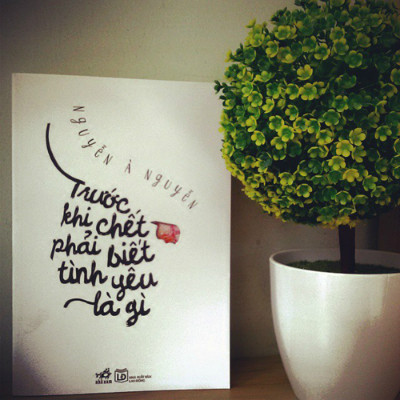 NGUYỄN À NGUYỄN
Trước
khi chết
phải biết
tình yêu
là gì
NHÃ NAM
LĐ
NHÀ XUẤT BẢN
LAO ĐỘNG